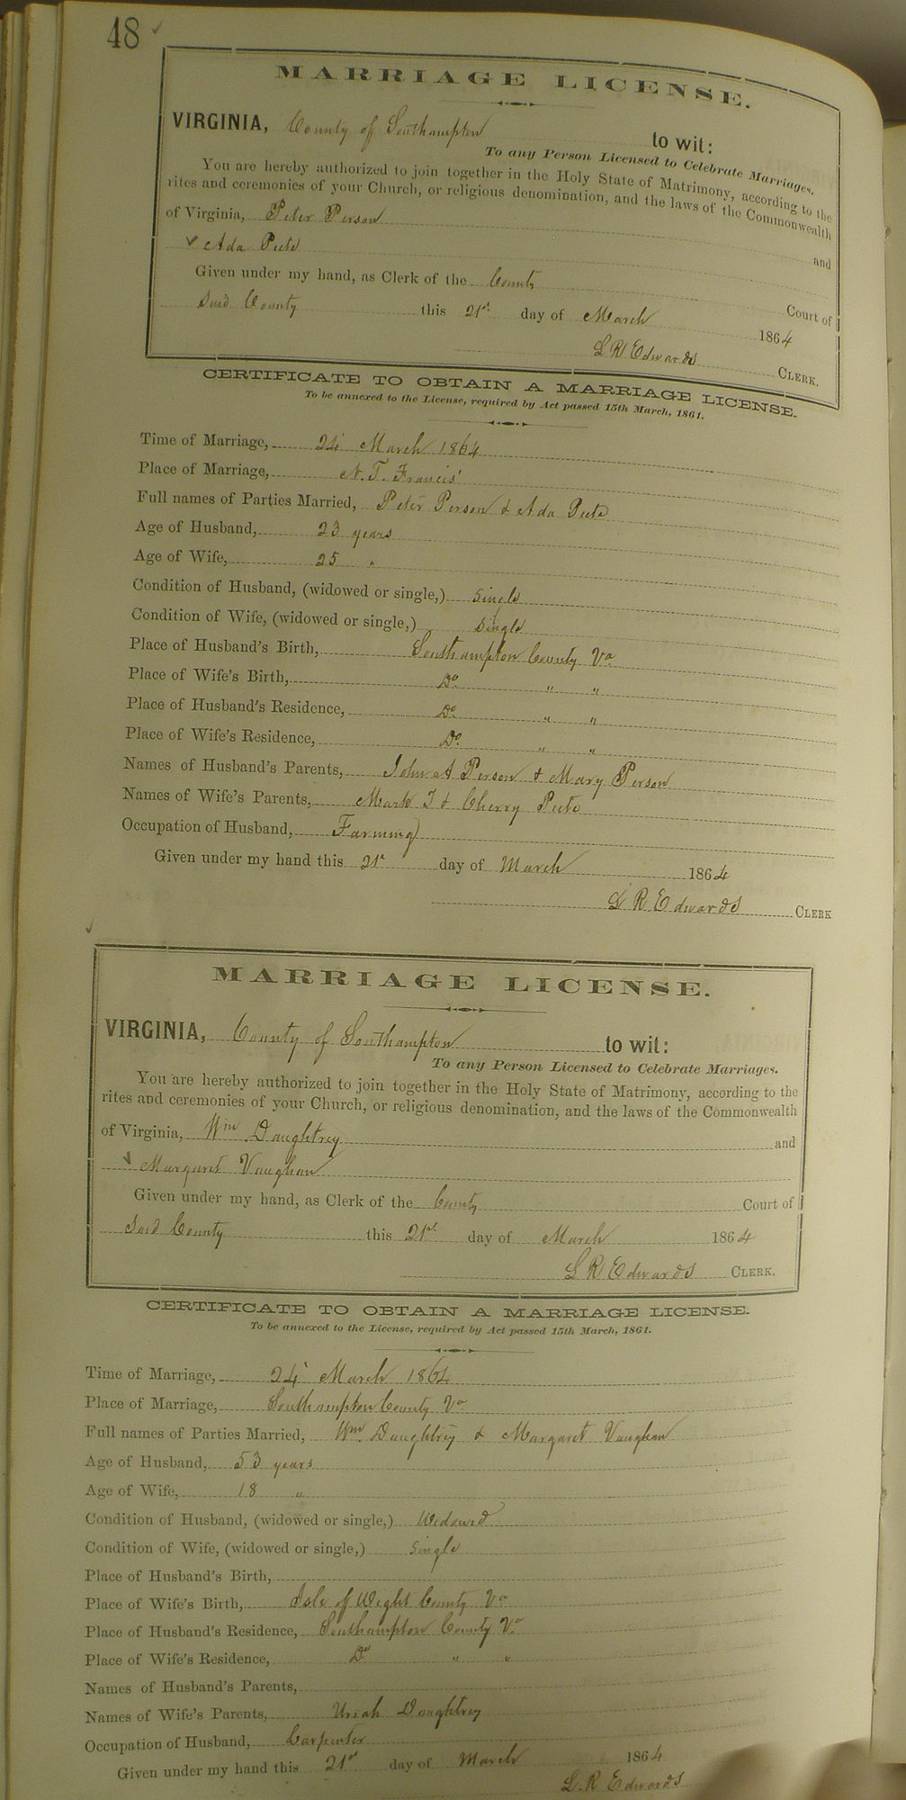 48
MARRIAGE LICENSE.
VIRGINIA, County of Southampton to wit:
To any Person Licensed to Celebrate Marriages.
You are hereby authorized to join together in the Holy State of Matrimony, according to the
rites and ceremonies of your Church, or religious denomination, and the laws of the Commonwealth
of Virginia, Peter Person and
✓ Ada Pete
Given under my hand, as Clerk of the County Court of
said County this 21st day of March 1864
L R Edwards CLERK.
CERTIFICATE TO OBTAIN A MARRIAGE LICENSE.
To be annexed to the License, required by Act passed 15th March, 1861.
Time of Marriage, 24 March 1864
Place of Marriage, N. T. Francis'
Full names of Parties Married, Peter Person & Ada Pete
Age of Husband, 23 years
Age of Wife, 25 "
Condition of Husband, (widowed or single,) single
Condition of Wife, (widowed or single,) single
Place of Husband's Birth, Southampton County Va
Place of Wife's Birth, Do " "
Place of Husband's Residence, Do " "
Place of Wife's Residence, Do " "
Names of Husband's Parents, John A Person & Mary Person
Names of Wife's Parents, Mark T & Cherry Pete
Occupation of Husband, Farming
Given under my hand this 21st day of March 1864
L R Edwards CLERK
MARRIAGE LICENSE.
VIRGINIA, County of Southampton to wit:
To any Person Licensed to Celebrate Marriages.
You are hereby authorized to join together in the Holy State of Matrimony, according to the
rites and ceremonies of your Church, or religious denomination, and the laws of the Commonwealth
of Virginia, Wm Daughtrey and
✓ Margaret Vaughan
Given under my hand, as Clerk of the County Court of
said County this 21st day of March 1864
L R Edwards CLERK.
CERTIFICATE TO OBTAIN A MARRIAGE LICENSE.
To be annexed to the License, required by Act passed 15th March, 1861.
Time of Marriage, 24 March 1864
Place of Marriage, Southampton County Va
Full names of Parties Married, Wm Daughtrey & Margaret Vaughan
Age of Husband, 53 years
Age of Wife, 18 "
Condition of Husband, (widowed or single,) Widowed
Condition of Wife, (widowed or single,) single
Place of Husband's Birth,
Place of Wife's Birth, Isle of Wight County Va
Place of Husband's Residence, Southampton County Va
Place of Wife's Residence, Do " "
Names of Husband's Parents,
Names of Wife's Parents, Uriah Daughtrey
Occupation of Husband, Carpenter
Given under my hand this 21st day of March 1864
L. R Edwards